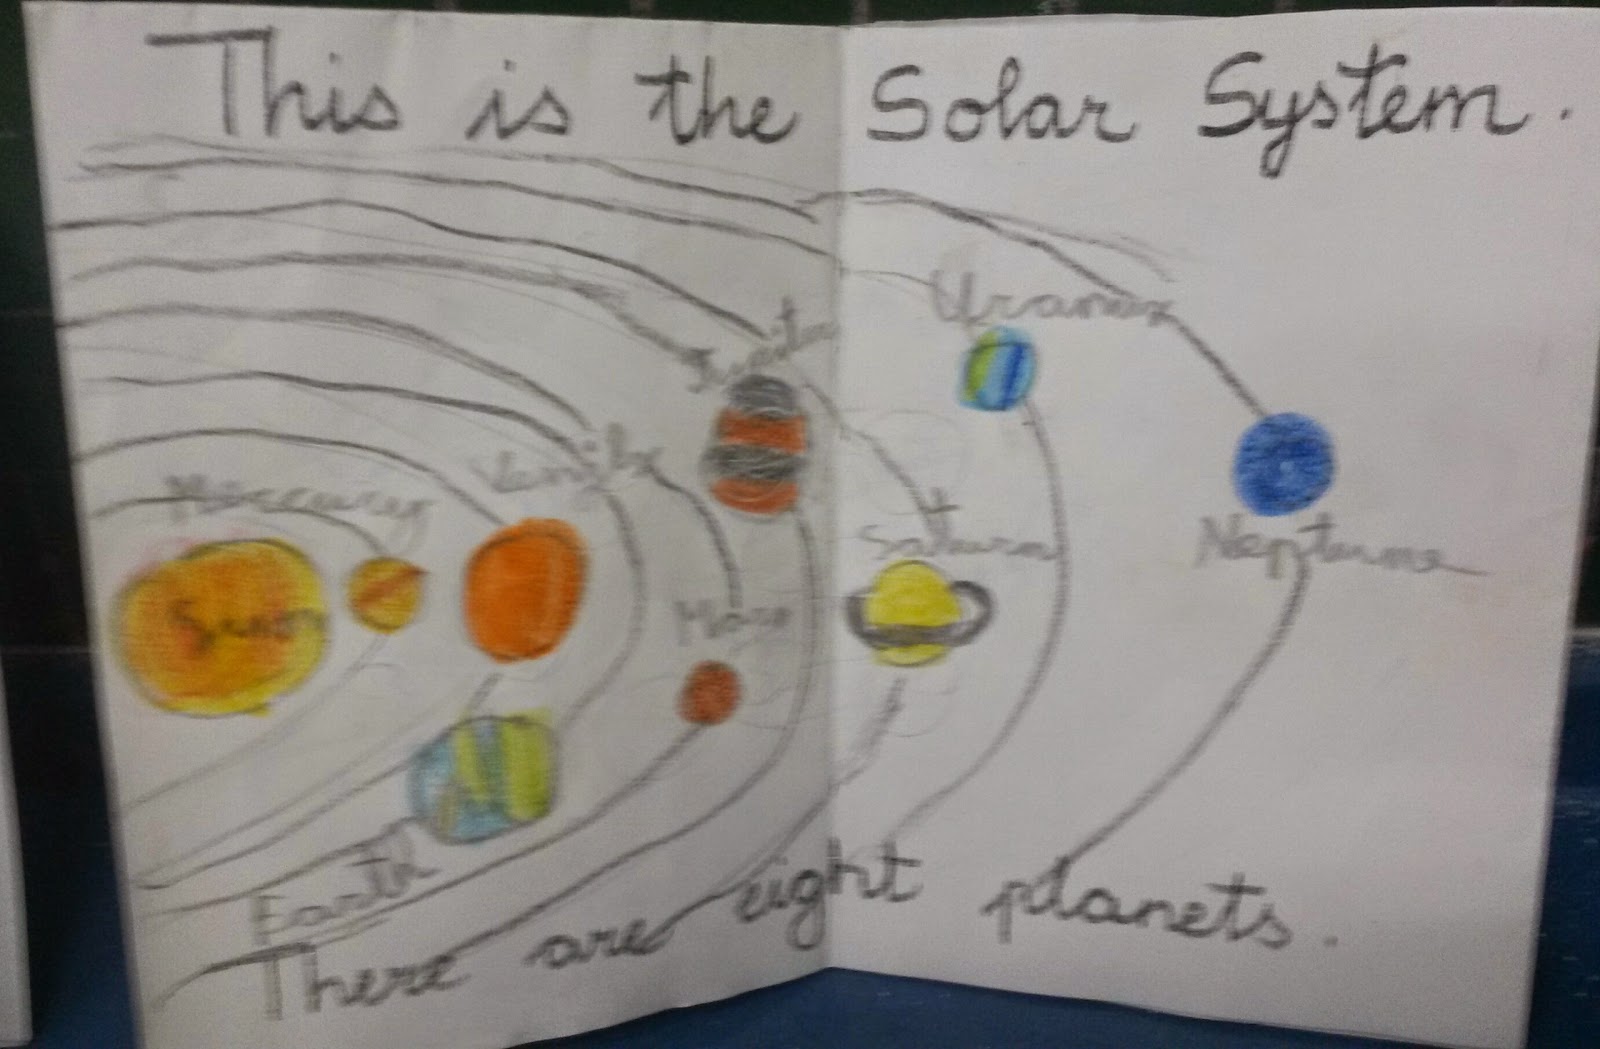 This is the Solar System.
Uranus
Jupiter
Saturn
Neptune
Mars
Earth
There are eight planets.